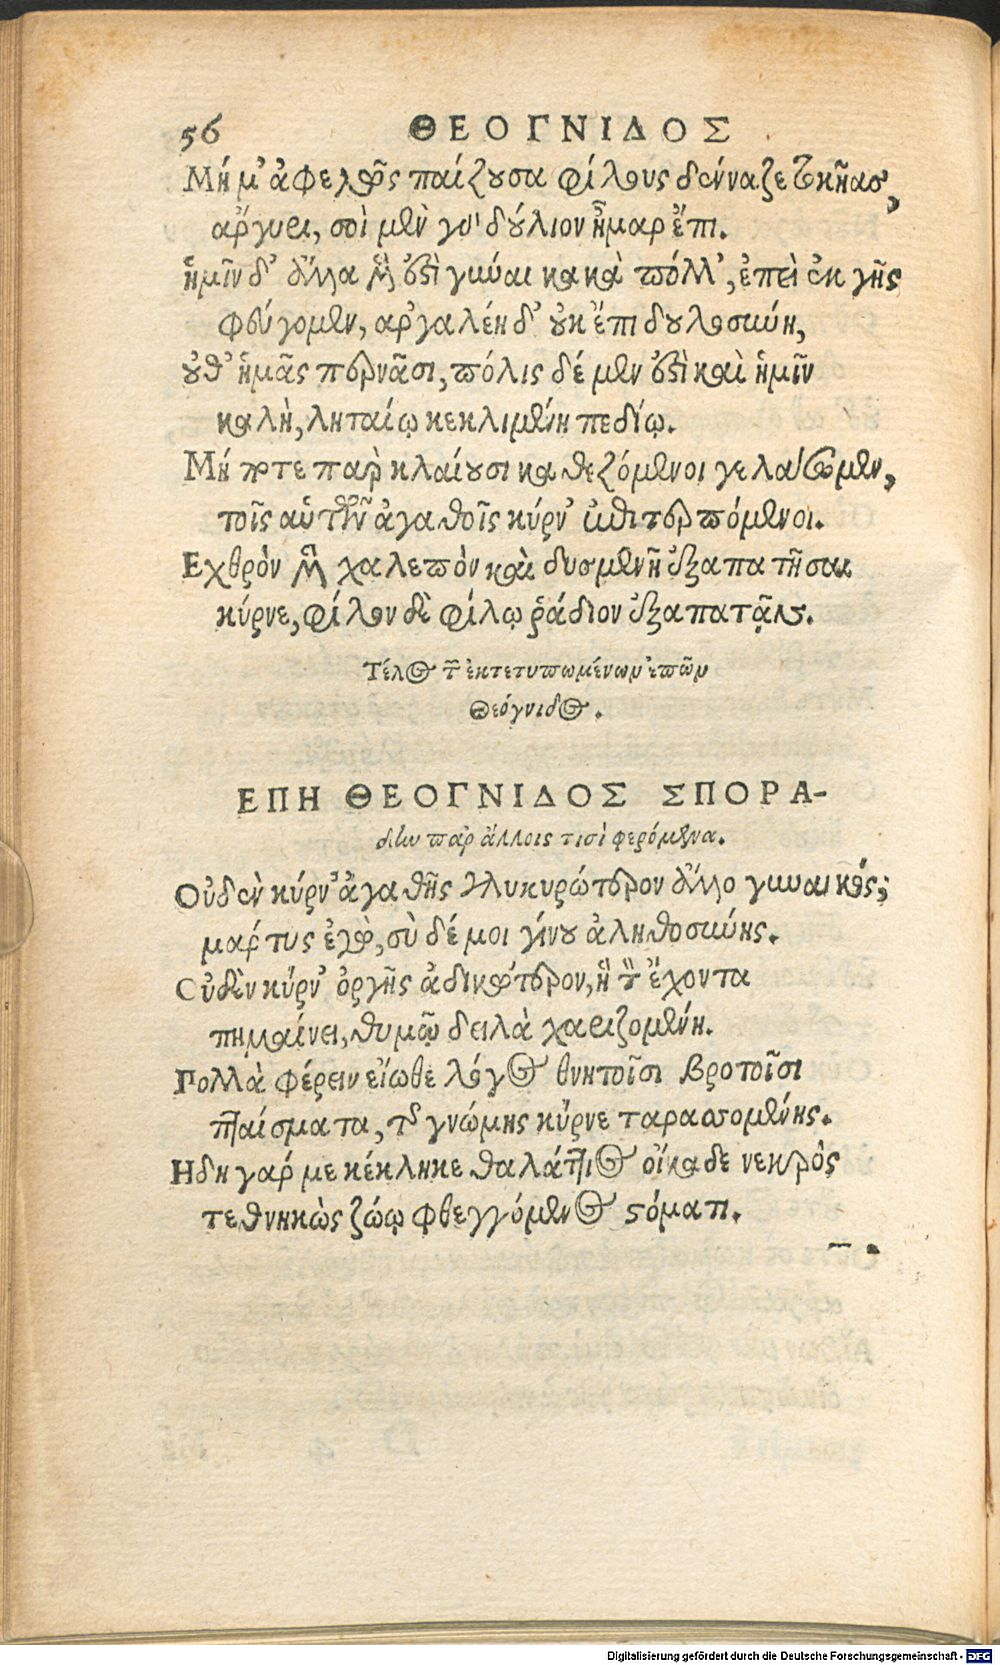 56 ΘΕΟΓΝΙΔΟΣ
Μή μ' ἀφελῶς παίζουσα φίλους δένναζε τοκῆας,
ἄργυρι, σοὶ μὲν γὸ δούλιον ἦμαρ ἔπι.
ἡμῖν δ' ἄλλα μὲν ἐστὶ γύναι κακὰ πόλλ', ἐπεὶ ἐκ γῆς
φεύγομεν, ἀργαλέη δ' οὐκ ἔπι δουλοσύνη,
οὐθ' ἡμᾶς περνᾶσι, πόλις δέ μεν ἐστὶ καὶ ἡμῖν
καλὴ, ληταίῳ κεκλιμένη πεδίῳ.
Μή ποτε παρ κλαίουσι καθεζόμενοι γελάσωμεν,
τοῖς αὑτῶν ἀγαθοῖς κύρν' ἐπιτερπόμενοι.
Εχθρὸν μὲν χαλεπὸν καὶ δυσμενῆ ἐξαπατῆσαι
κύρνε, φίλον δὲ φίλῳ ῥάδιον ἐξαπατᾷν.
Τέλος τῶν ἐκτετυπωμένων ἐπῶν
Θεόγνιδος.
ΕΠΗ ΘΕΟΓΝΙΔΟΣ ΣΠΟΡΑ-
δὴν παρ ἄλλοις τισὶ φερόμενα.
Οὐδὲν κύρν' ἀγαθῆς γλυκυρώτερον ἄλλο γυναικός;
μάρτυς ἐγὼ, σὺ δέ μοι γίνου ἀληθοσύνης.
Οὐδὲν κύρν' ὀργῆς ἀδικώτερον, ἣ τὸν ἔχοντα
πημαίνει, θυμῷ δειλὰ χαριζομένη.
Πολλὰ φέρειν εἴωθε λόγος θνητοῖσι βροτοῖσι
πταίσματα, τῆς γνώμης κύρνε ταρασσομένης.
Ηδη γάρ με κέκληκε θαλάττιος οἴκαδε νεκρὸς
τεθνηκὼς ζώῳ φθεγγόμενος στόματι.
Digitalisierung gefördert durch die Deutsche Forschungsgemeinschaft - DFG